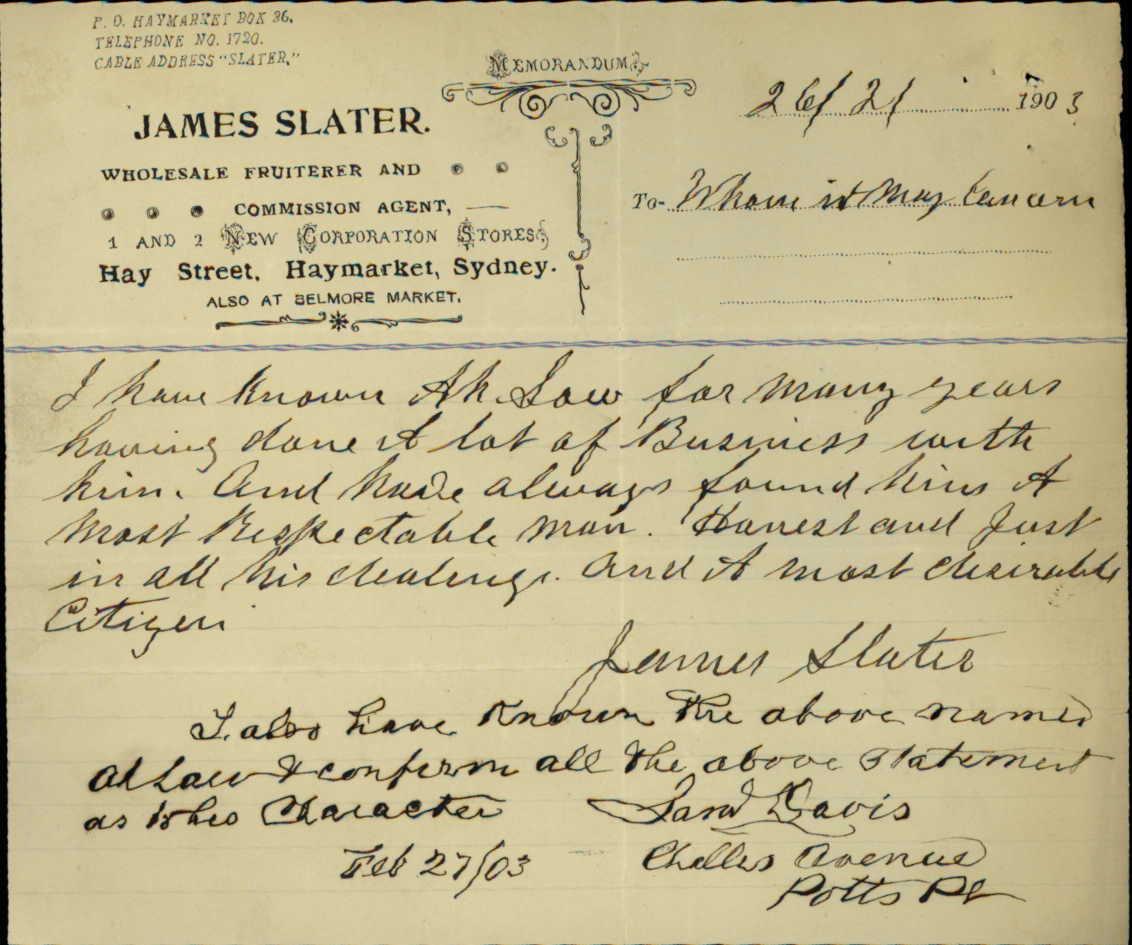 P. O. HAYMARKET BOX 36.
TELEPHONE NO. 1720.
CABLE ADDRESS "SLATER."
MEMORANDUM
JAMES SLATER.
WHOLESALE FRUITERER AND
COMMISSION AGENT,
1 AND 2 NEW CORPORATION STORES
Hay Street, Haymarket, Sydney.
ALSO AT BELMORE MARKET.
26/2/ 1903
To- Whom it May Concern
I have known Ah. Low for many years
having done A lot of Business with
him. And have always found him A
Most Respectable man. Honest and Just
in all his dealings. And A most desirable
Citizen
James Slater
I also have Known the above named
Ah Law & confirm all the above statement
as to his Character
Saml Davis
Feb 27/03
Challis Avenue
Potts Pt